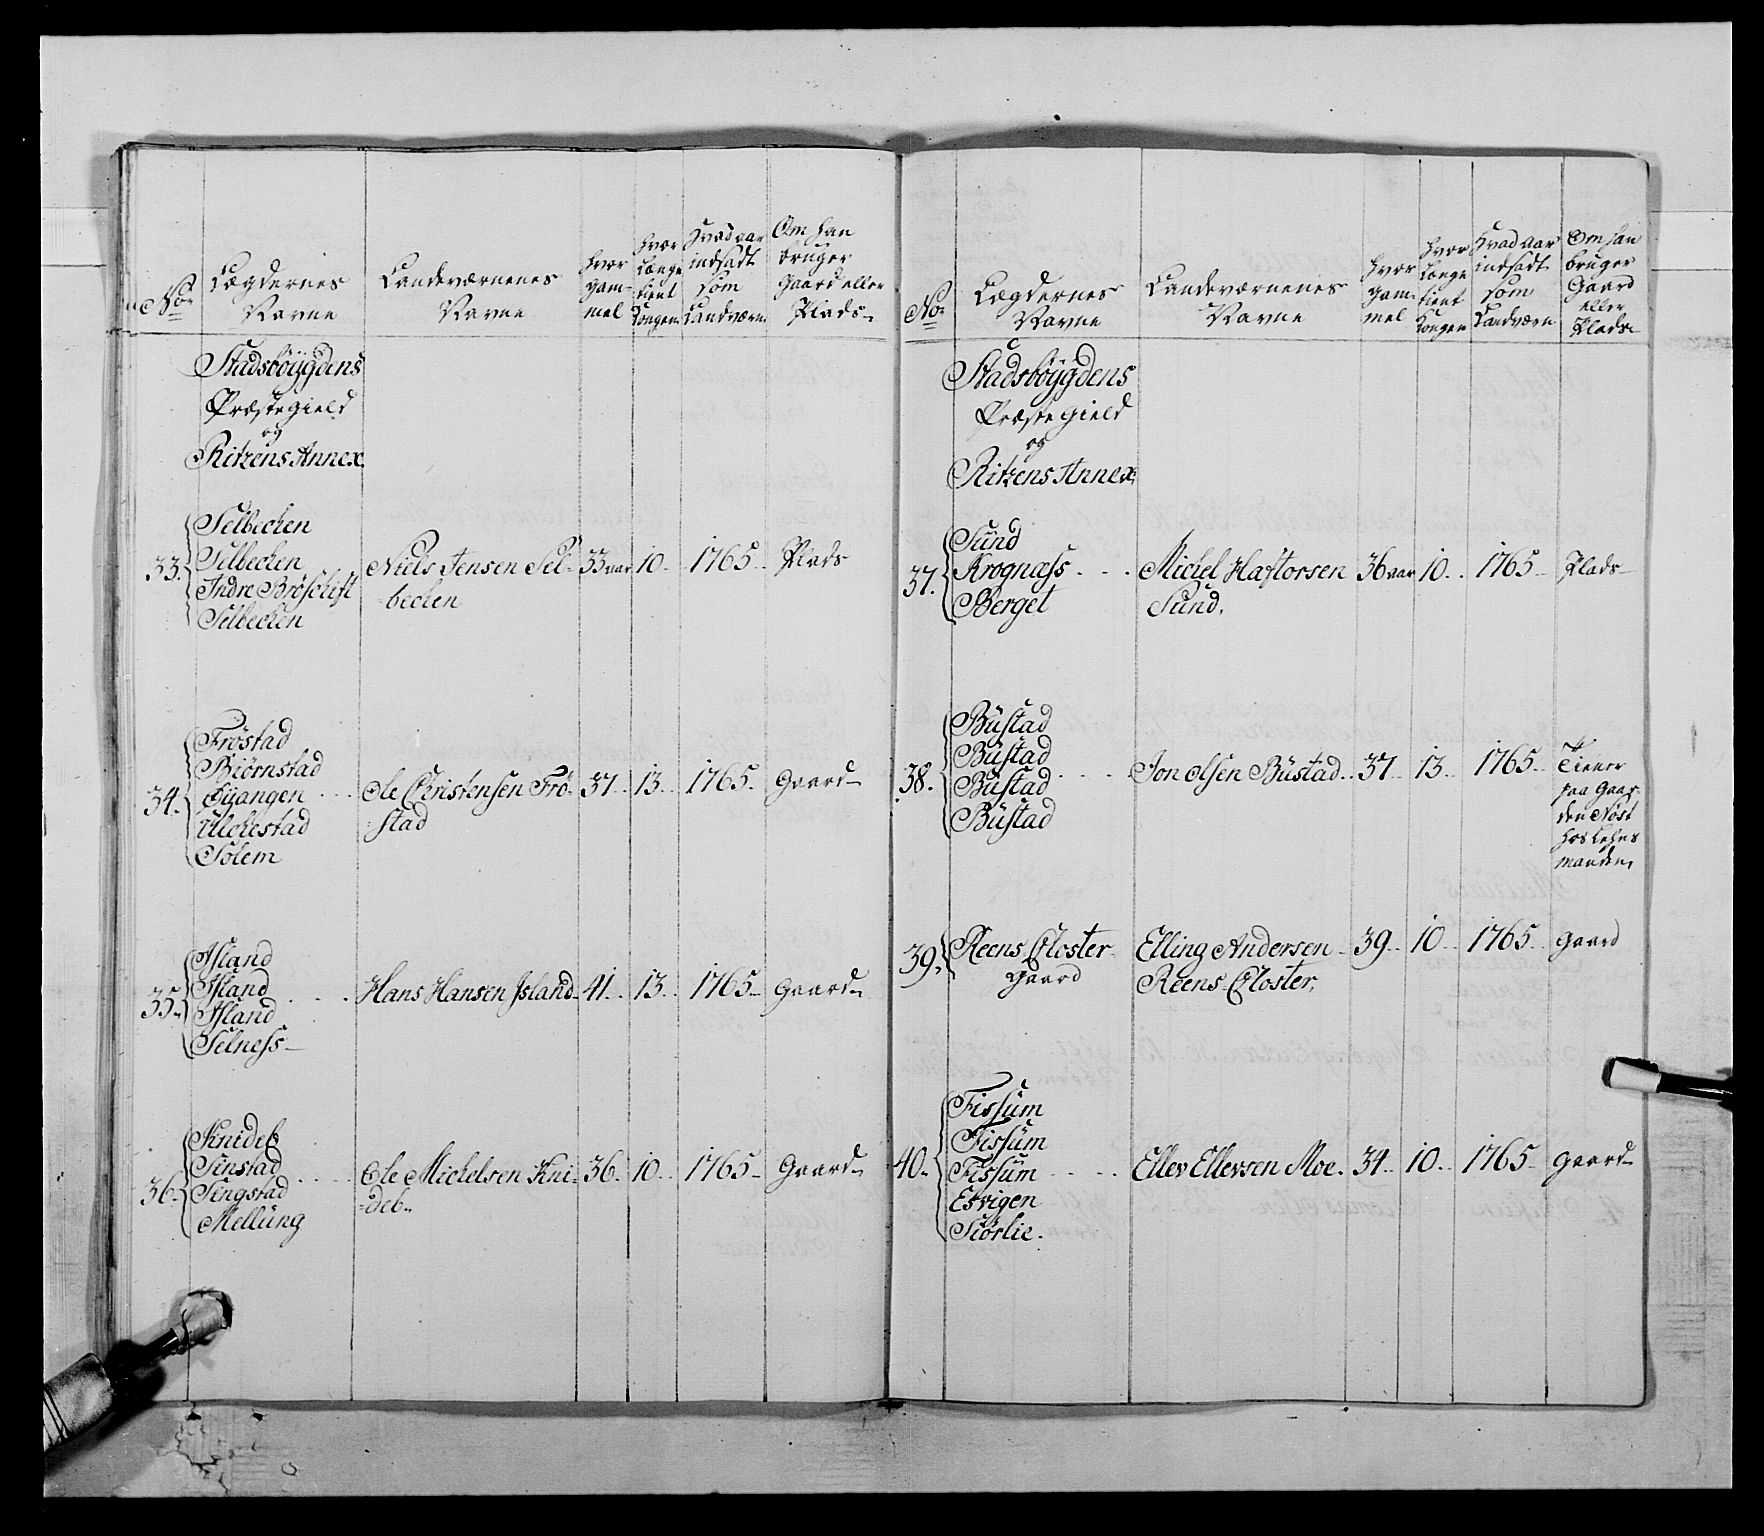 No
Lægdernes
Navne
Landeværnenes
Navne
hvor
gam-
mel
hvor
Længe
tient
Kongen
Hvad aar
indsadt
som
Landværn
Om han
bruger
Gaard eller
Plads
Stadsböygdens
Præstegield
og
Ritzens Annex
33.
Selbechen
Selbechen
Indre Bröschift
Selbechen
Niels Jensen Sel-
bechen
33 aar
10.
1765.
Plads
34.
Fröstad
Biörnstad
Öyangen
Ulchestad
Solem
Ole Christensen Frö-
stad
37.
13.
1765.
Gaard
35.
Island
Island
Island
Selness
Hans Hansen Island
41.
13.
1765
Gaard
36.
Knideb
Sinstad
Singstad
Mellüng
Ole Michelsen Kni-
deb
36.
10.
1765
Gaard
No
Lægdernes
Navne
Landeværnenes
Navne
hvor
gam-
mel
hvor
Længe
tient
Kongen
Hvad aar
indsadt
som
Landværn
Om han
bruger
Gaard
eller
Plads
Stadsböygdens
Præstegield
og
Ritzens Annex
37.
Sund
Krognæss
Berget
Michel Haftorsen
Sund.
36 aar
10.
1765
Plads
38.
Büstad
Büstad
Büstad
Büstad
Jon Olsen Büstad.
37
13
1765
Tiener
paa Gaar-
den Nöst
hos Lehns
manden
39.
Reens Closter
gaard
Elling Andersen
Reens Closter.
39.
10.
1765
Gaard
40.
Fissüm
Fissüm
Fissüm
Esvigen
Siörlie.
Ellev Ellevsen Moe.
34.
10.
1765
Gaard